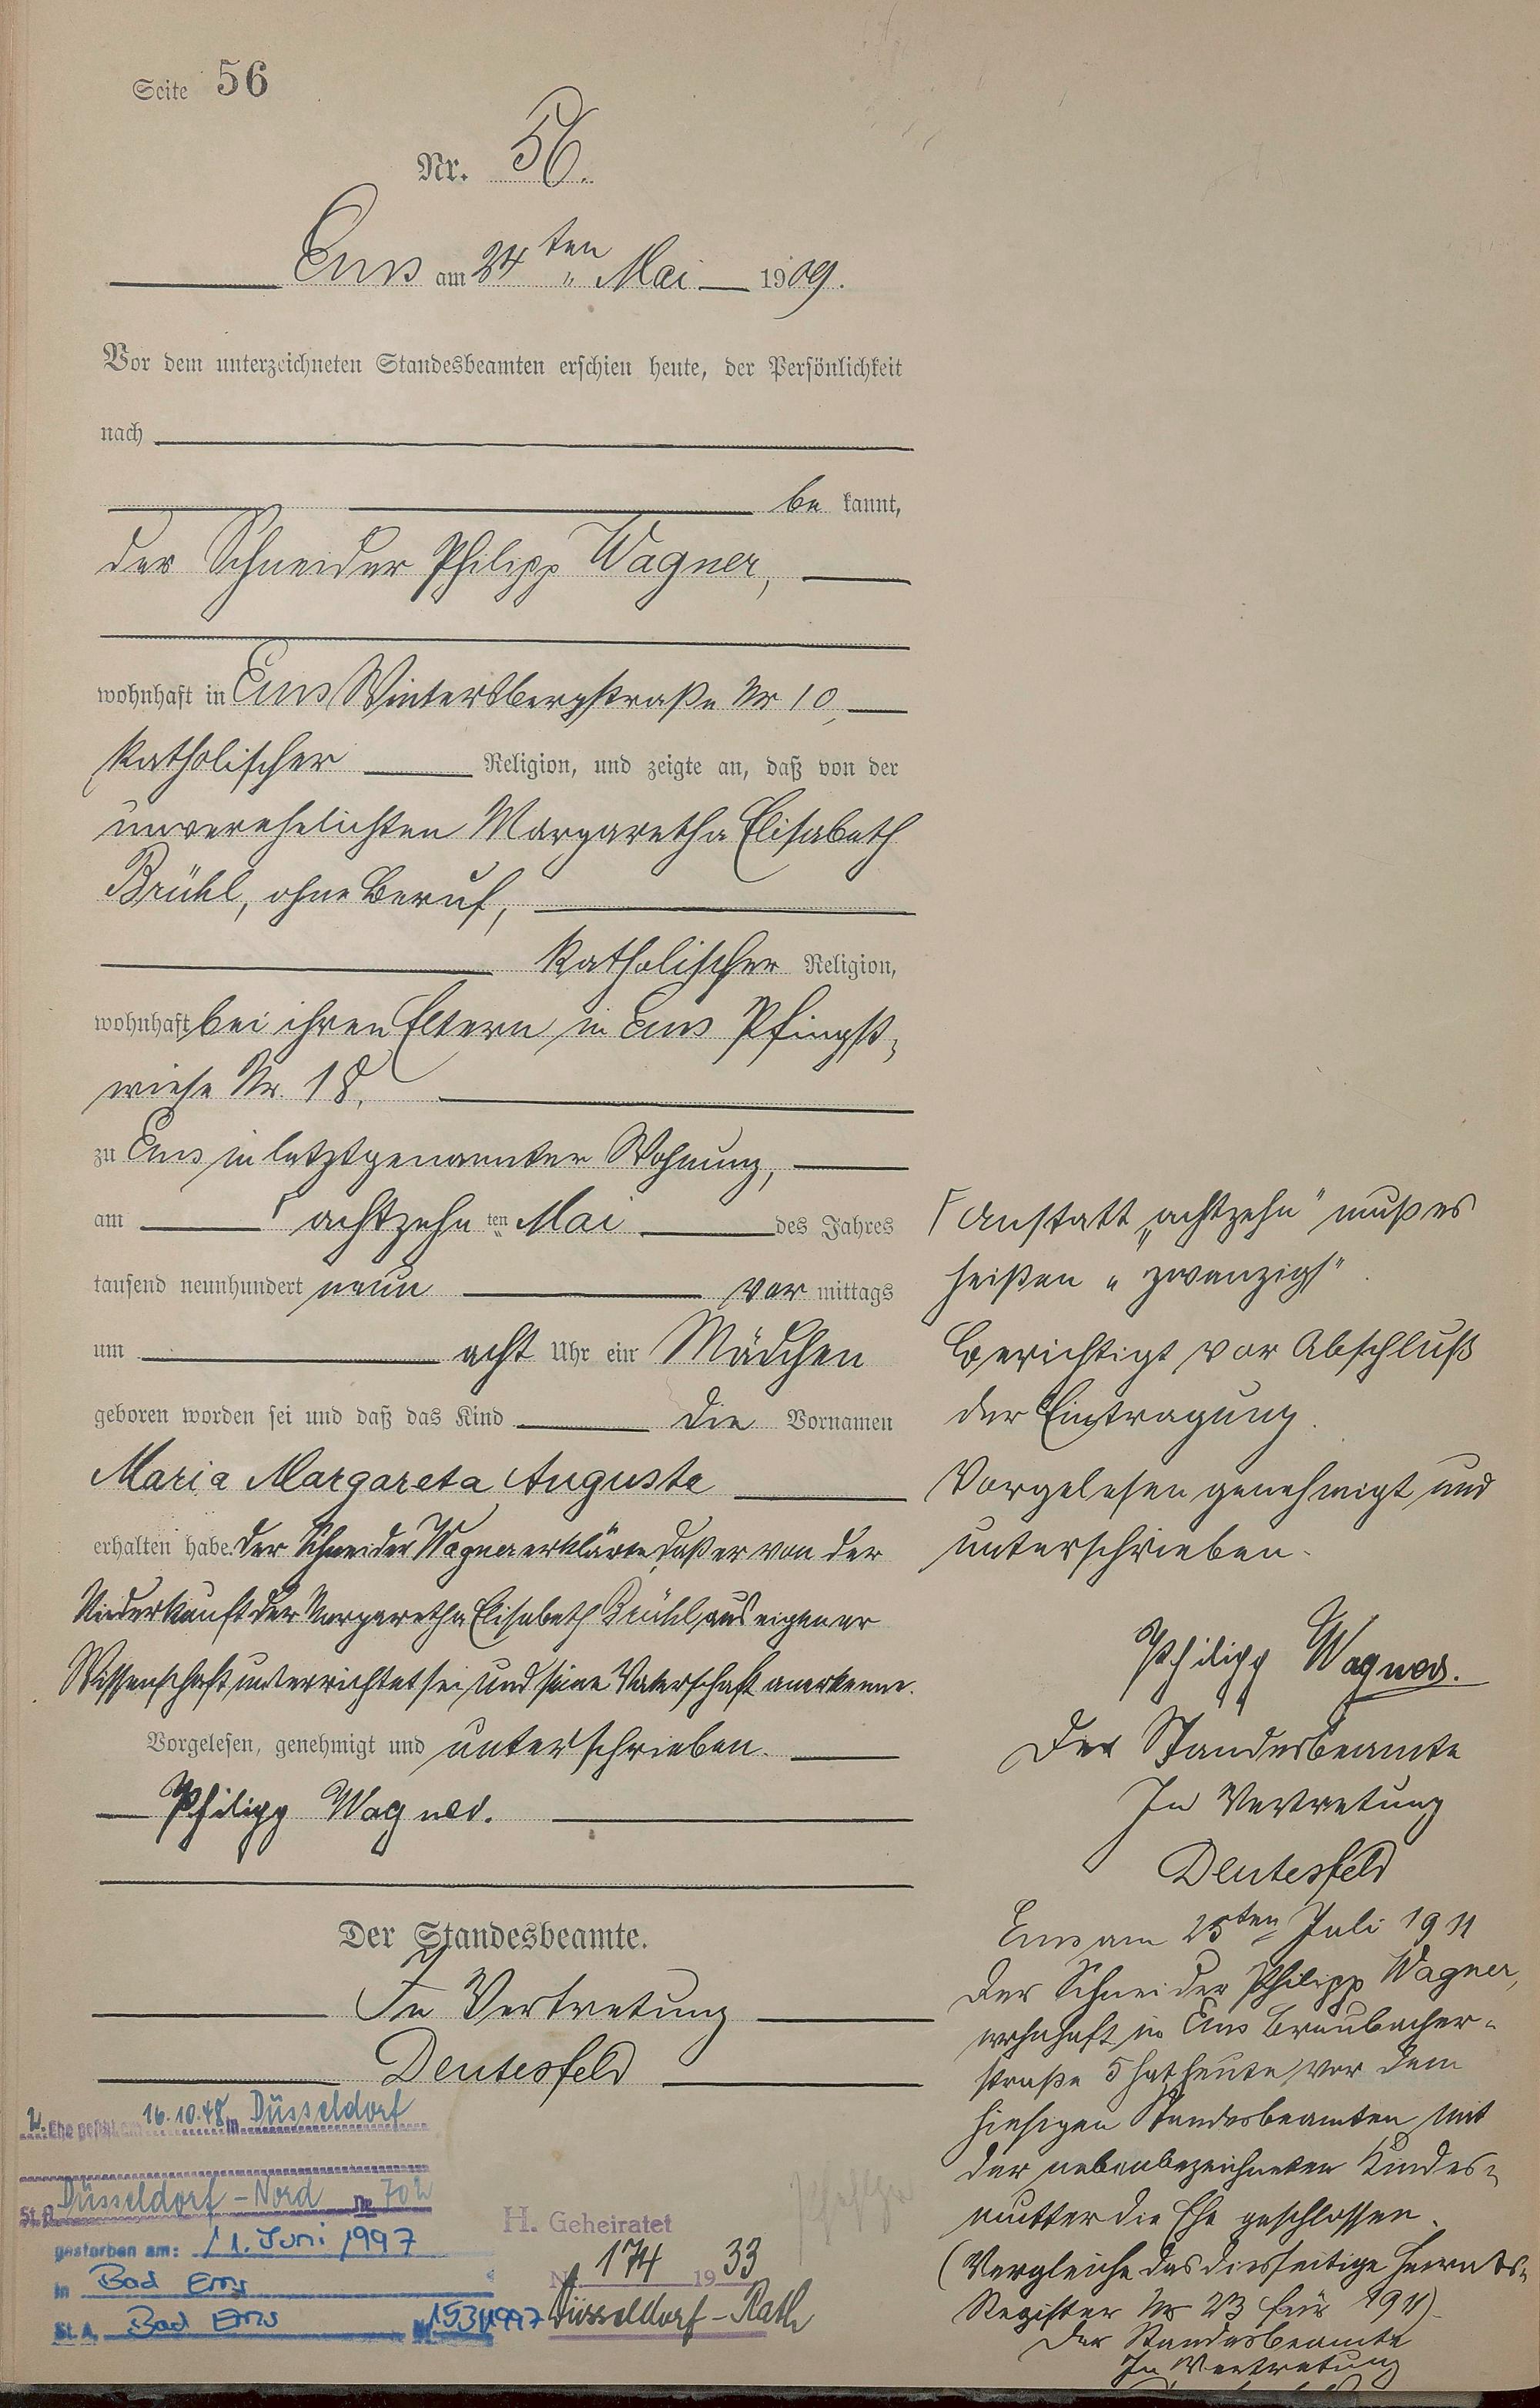 Seite 56
Nr. 56.
Ems am 24ten Mai 1909.
Vor dem unterzeichneten Standesbeamten erschien heute, der Persönlichkeit
nach
be kannt,
der Schneider Philipp Wagner,
wohnhaft in Ems Wintersbergstraße Nr 10,
katholischer Religion, und zeigte an, daß von der
unverehelichten Margaretha Elisabeth
Brühl, ohne Beruf,
katholischer Religion,
wohnhaft bei ihren Eltern in Ems Pfingst-
wiese Nr. 18,
zu Ems in letztgenannter Wohnung,
am ⌈ achtzehn ten Mai des Jahres
tausend neunhundert neun vor mittags
um acht Uhr ein Mädchen
geboren worden sei und daß das Kind die Vornamen
Maria Margareta Auguste
erhalten habe. Der Schneider Wagner erklärte, daß er von der
Niederkunft der Margaretha Elisabeth Brühl aus eigener
Wissenschaft unterrichtet sei und seine Vaterschaft anerkenne.
Vorgelesen, genehmigt und unterschrieben.
Philipp Wagner.
Der Standesbeamte.
In Vertretung
Deutesfeld
⌈ Anstatt „achtzehn" muß es
heißen „zwanzigst".
Berichtigt vor Abschluß
der Eintragung.
Vorgelesen genehmigt und
unterschrieben.
Philipp Wagner.
Der Standesbeamte
In Vertretung
Deutesfeld
Ems am 25ten Juli 1911
Der Schneider Philipp Wagner,
wohnhaft in Ems Braubacher-
straße 5 hat heute vor dem
hiesigen Standesbeamten mit
der nebenbezeichneten Kindes-
mutter die Ehe geschlossen.
(Vergleiche das diesseitige Heirats-
Register Nr 23 für 1911).
Der Standesbeamte
In Vertretung
2. Ehe geschl. am 16.10.48 in Düsseldorf
St.A. Düsseldorf-Nord Nr 702
gestorben am: 11. Juni 1997
in Bad Ems
St.A. Bad Ems Nr. 153/1997
H. Geheiratet
N 174 1933
Düsseldorf-Rath